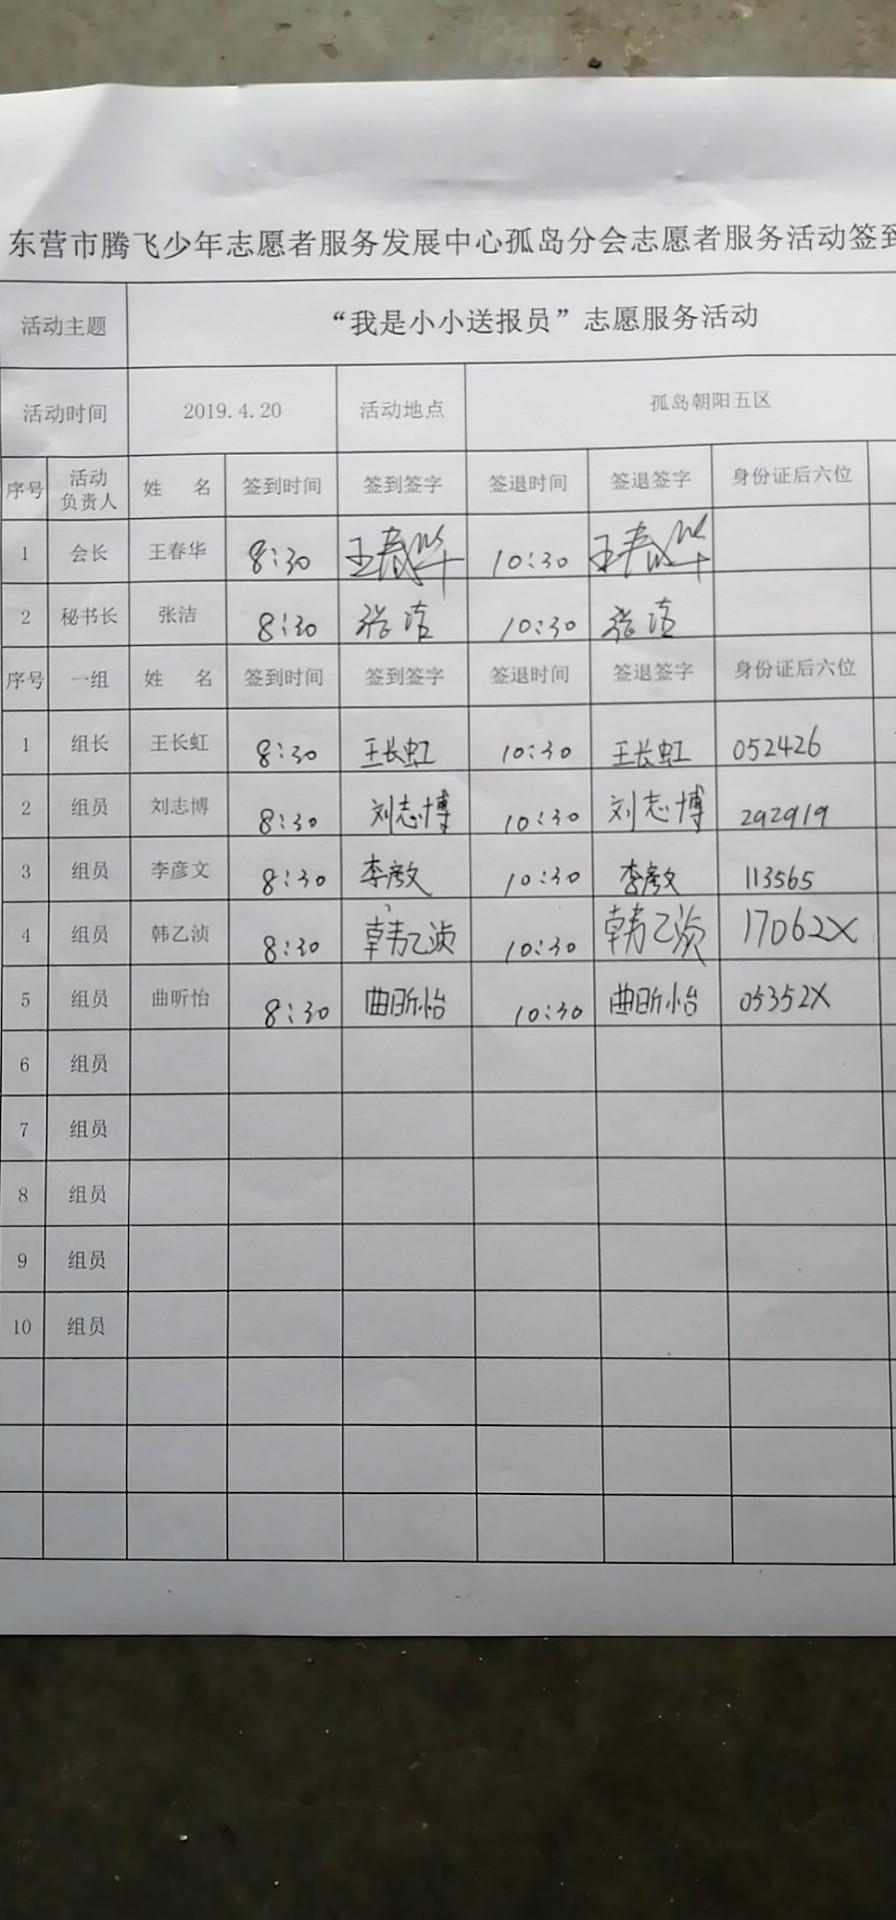 东营市腾飞少年志愿者服务发展中心孤岛分会志愿者服务活动签到
活动主题 “我是小小送报员”志愿服务活动
活动时间 2019.4.20 活动地点 孤岛朝阳五区
序号 活动负责人 姓 名 签到时间 签到签字 签退时间 签退签字 身份证后六位
1 会长 王春华 8:30 王春华 10:30 王春华
2 秘书长 张洁 8:30 张洁 10:30 张洁
序号 一组 姓 名 签到时间 签到签字 签退时间 签退签字 身份证后六位
1 组长 王长虹 8:30 王长虹 10:30 王长虹 052426
2 组员 刘志博 8:30 刘志博 10:30 刘志博 292919
3 组员 李彦文 8:30 李彦文 10:30 李彦文 113565
4 组员 韩乙浈 8:30 韩乙浈 10:30 韩乙浈 17062X
5 组员 曲昕怡 8:30 曲昕怡 10:30 曲昕怡 05352X
6 组员
7 组员
8 组员
9 组员
10 组员